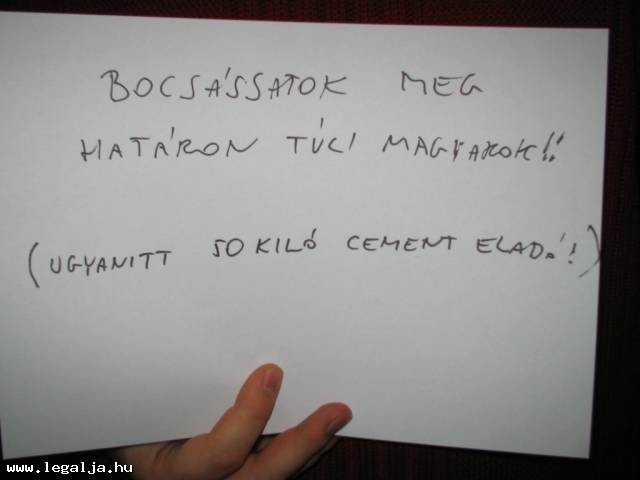 BOCSÁSSATOK MEG
HATÁRON TÚLI MAGYAROK!!
(UGYANITT 50 KILÓ CEMENT ELADÓ!)
www.legalja.hu